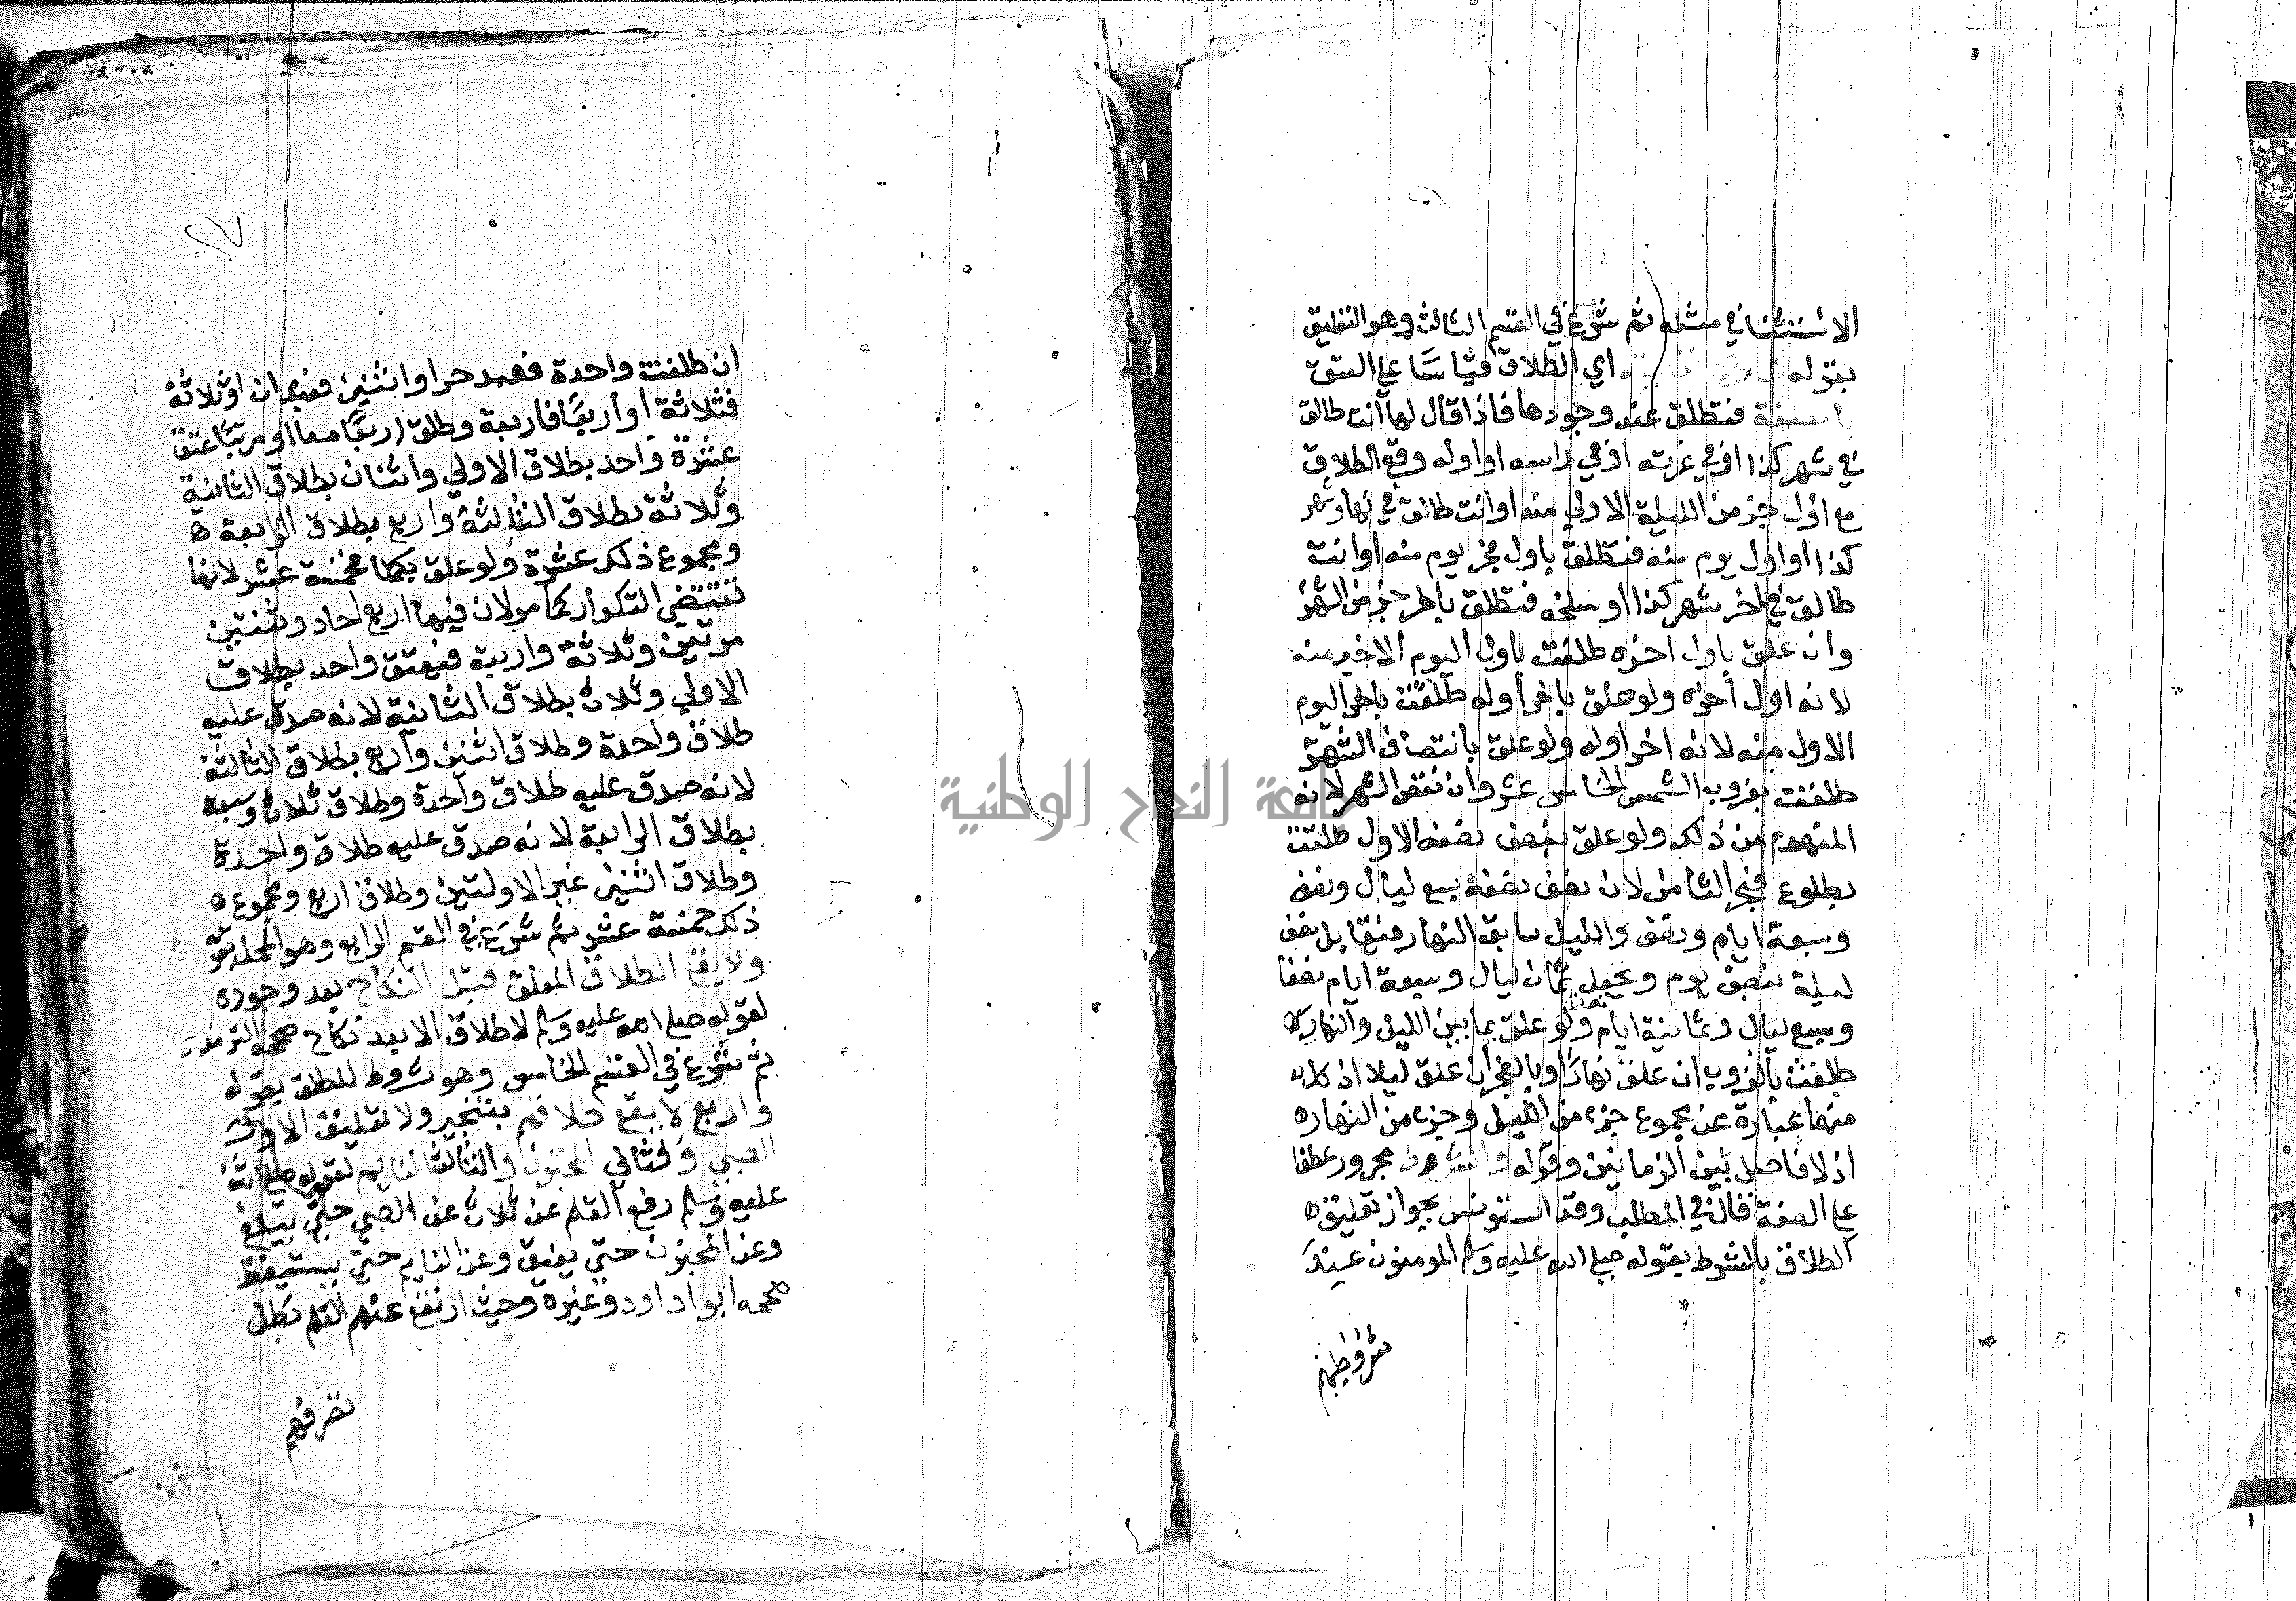 الاستثنا في مثله ثم شرع في القسم الثالث وهو التعليق
بقوله اي الطلاق قياسا على العتق
بالصفة فتطلق عند وجودها فاذا قال لها انت طالق
في شهر كذا او في غرته او في راسه او اوله وقع الطلاق
مع اول جزء من الليلة الاولي منه او انت طالق في نهار شهر
كذا او اول يوم منه فتطلق باول فجر يوم منه او انت
طالق في اخر شهر كذا او سلخه فتطلق باخر جزء من الشهر
وان علق باول اخره طلقت باول اليوم الاخير منه
لانه اول اخره ولو علق باخر اوله طلقت باخر اليوم
الاول منه لانه اخر اوله ولو علق بانتصاف الشهر
طلقت بغروب الشمس الخامس عشر وان نقص الشهر لانه
المفهوم من ذلك ولو علق بنصف نصفه الاول طلقت
بطلوع فجر الثامن لان نصف نصفه سبع ليال ونصف
وسبعة ايام ونصف والليل سابق النهار فيقابل نصف
ليلة بنصف يوم ويجعل ثمان ليال وسبعة ايام نصفا
وسبع ليال وثمانية ايام نصفا ولو علق بما بين الليل والنهار
طلقت بالغروب ان علق نهارا وبالفجر ان علق ليلا اذ كل
منهما عبارة عن مجموع جزء من الليل وجزء من النهار
اذ لا فاصل بين الزمانين وقوله والشرط مجرور عطفا
على الصفة قال في المطلب وقد استونس بجواز تعليق
الطلاق بالشرط بقوله صلى الله عليه وسلم المومنون عند
شروطهم
جامعة النجاح الوطنية
ان طلقت واحدة فعبد حر او اثنين فعبدان او ثلاثة
فثلاثة او اربعا فاربعة وطلق اربعا معا او مرتبا عتق
عشرة واحد بطلاق الاولي واثنان بطلاق الثانية
وثلاثة بطلاق الثالثة واربع بطلاق الرابعة
ومجموع ذلك عشرة ولو علق بكلما فخمسة عشر لانها
تقتضي التكرار كما مر لان فيها اربع احاد وثنتين
مرتين وثلاثة واربعة فيعتق واحد بطلاق
الاولي وثلاث بطلاق الثانية لانه صدق عليه
طلاق واحدة وطلاق اثنين واربع بطلاق الثالثة
لانه صدق عليه طلاق واحدة وطلاق ثلاث وسبعة
بطلاق الرابعة لانه صدق عليه طلاق واحدة
وطلاق اثنين غير الاولتين وطلاق اربع ومجموع
ذلك خمسة عشر ثم شرع في القسم الرابع وهو المحل بقوله
ولا يقع الطلاق المعلق قبل النكاح بعد وجوده
لقوله صلى الله عليه وسلم لا طلاق الا بعد نكاح صححه الترمذي
ثم شرع في القسم الخامس وهو شروط المطلق بقوله
واربع لا يقع طلاقهم بتنجيز ولا تعليق الاول
الصبي والثاني المجنون والثالث النايم لقوله صلى الله
عليه وسلم رفع القلم عن ثلاث عن الصبي حتي يبلغ
وعن المجنون حتي يفيق وعن النايم حتي يستيقظ
صححه ابو اداود وغيره وحيث ارتفع عنهم القلم بطل
تصرفهم